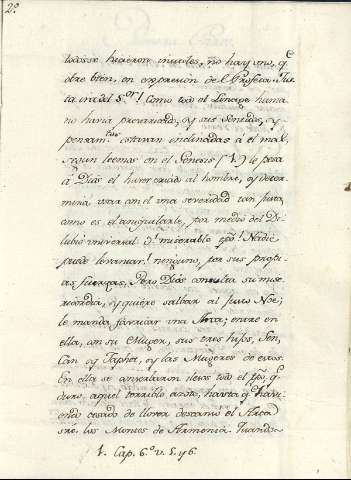 2º
todos se hicieron inutiles, no hay uno, q.e
obre bien, en expresion del Profeta
ira del S.or! Como todo el Linage huma
no havia prevaricado, y sus Sentidos, y
pensam.tos estavan inclinados á el mal,
segun leemos en el Genesis (1.) le pesa
á Dios el haver criado al hombre, y deter
mina usar con el una severidad tan justa
como es el aniquilarle, por medio del Di
lubio universal O! miserable Nadie
puede levantar! ninguno, por sus propias
fuerzas, Pero Dios consulta su mise
ricordia, y quiere salbar al justo Noe;
le manda favricar una Arca; entre en
ella, con su Muger, sus tres hijos, Sen,
Can y Japhet, y las Mugeres de estos.
En ella se ancerraron lleros todo el tpo, q.e
duro, aquel terrible azote, hasta q.e havi
endo cesado de llover descansó el Arca
sre. los Montes de Armenia.
1. Cap. 6.º v. 5. y 6.